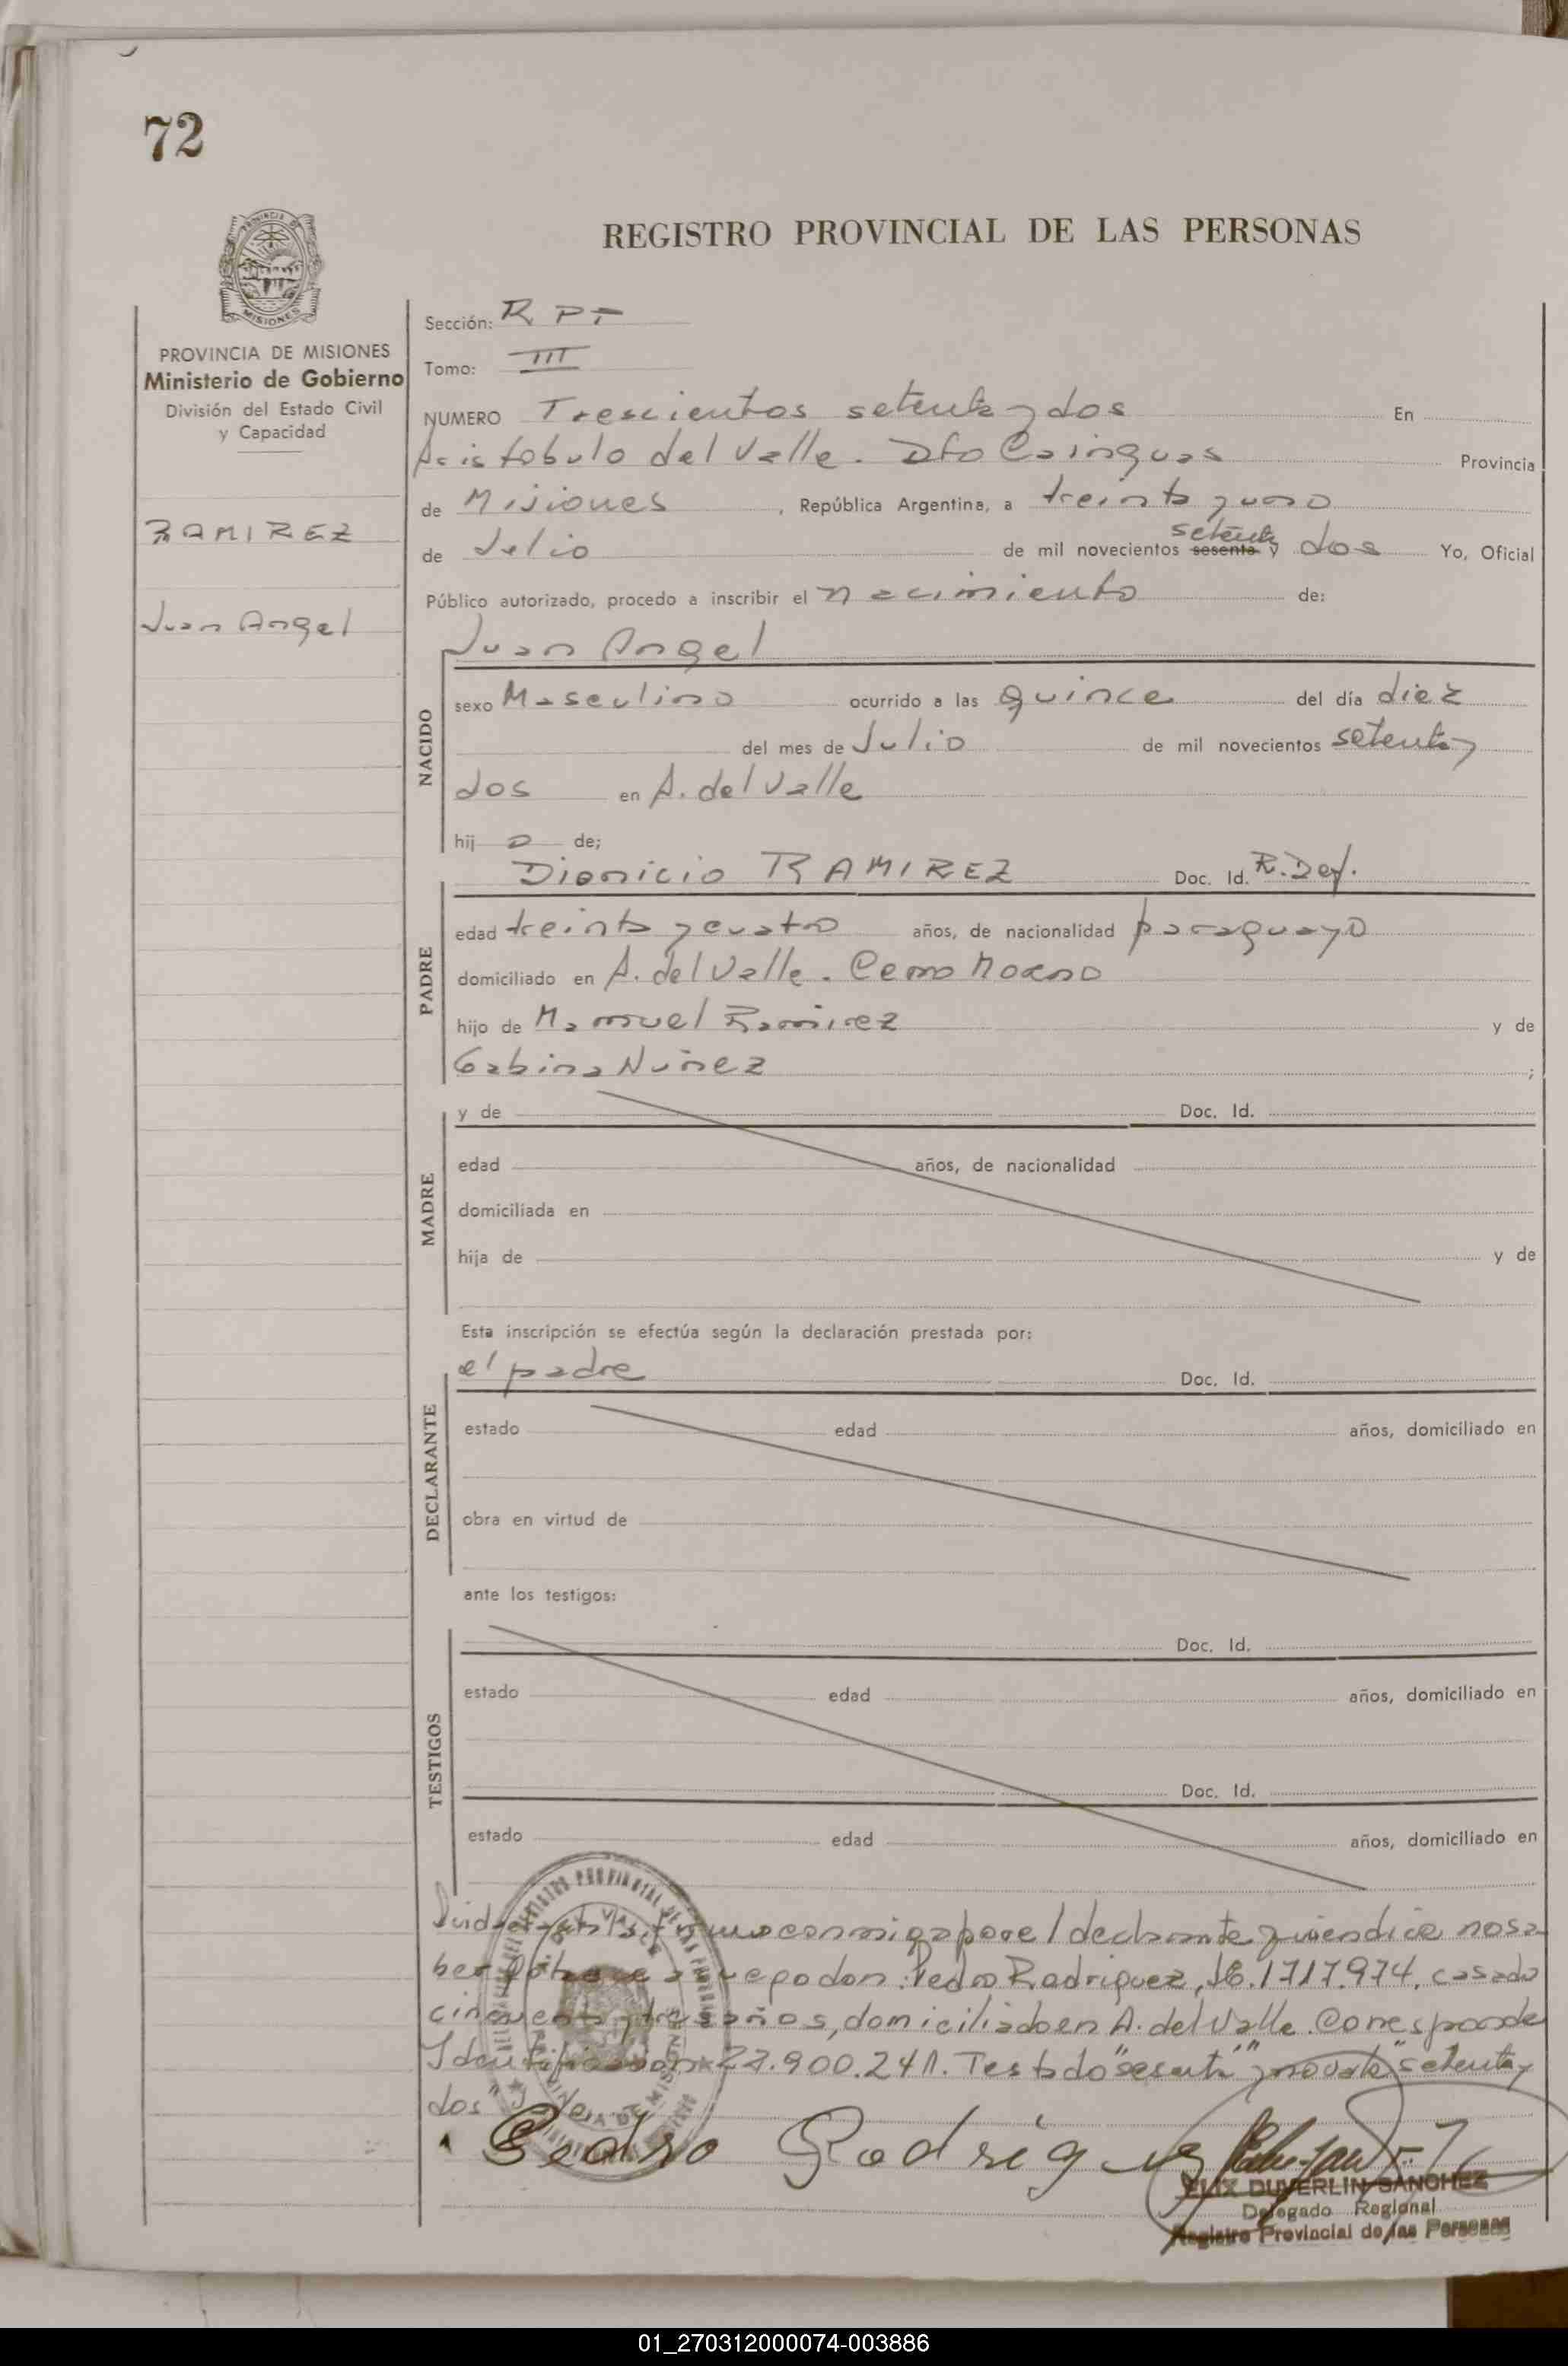 72
REGISTRO PROVINCIAL DE LAS PERSONAS
PROVINCIA DE
MISIONES
PROVINCIA DE MISIONES
Ministerio de Gobierno
División del Estado Civil
y Capacidad
RAMIREZ
Juan Angel
Sección: R P T
Tomo: III
NUMERO Trescientos setenta y dos En
Aristobulo del Valle. Dto Cainguas Provincia
de Misiones, República Argentina, a treinta y uno
de Julio de mil novecientos sesenta y setenta dos Yo, Oficial
Público autorizado, procedo a inscribir el nacimiento de:
Juan Angel
NACIDO
sexo Masculino ocurrido a las quince del día diez
del mes de Julio de mil novecientos setenta y
dos en A. del Valle
hij o de;
Dionicio RAMIREZ Doc. Id.
PADRE
edad treinta y cuatro años, de nacionalidad paraguayo
domiciliado en A. del Valle. Cerro Moreno
hijo de Manuel Ramirez y de
Gabina Nuñez ;
MADRE
y de Doc. Id.
edad años, de nacionalidad
domiciliada en
hija de y de
Esta inscripción se efectúa según la declaración prestada por:
el padre Doc. Id.
DECLARANTE
estado edad años, domiciliado en
obra en virtud de
ante los testigos:
TESTIGOS
Doc. Id.
estado edad años, domiciliado en
Doc. Id.
estado edad años, domiciliado en
conmigo por el declarante quien dice no sa
ber don: Pedro Rodriguez, casado
cincuenta y tres años, domiciliado en A. del Valle. Corresponde
22.900.241. Testado "sesenta" "setenta y
dos"
Pedro Rodriguez
FELIX DUVERLIN SANCHEZ
Delegado Regional
Registro Provincial de las Personas
01_270312000074-003886